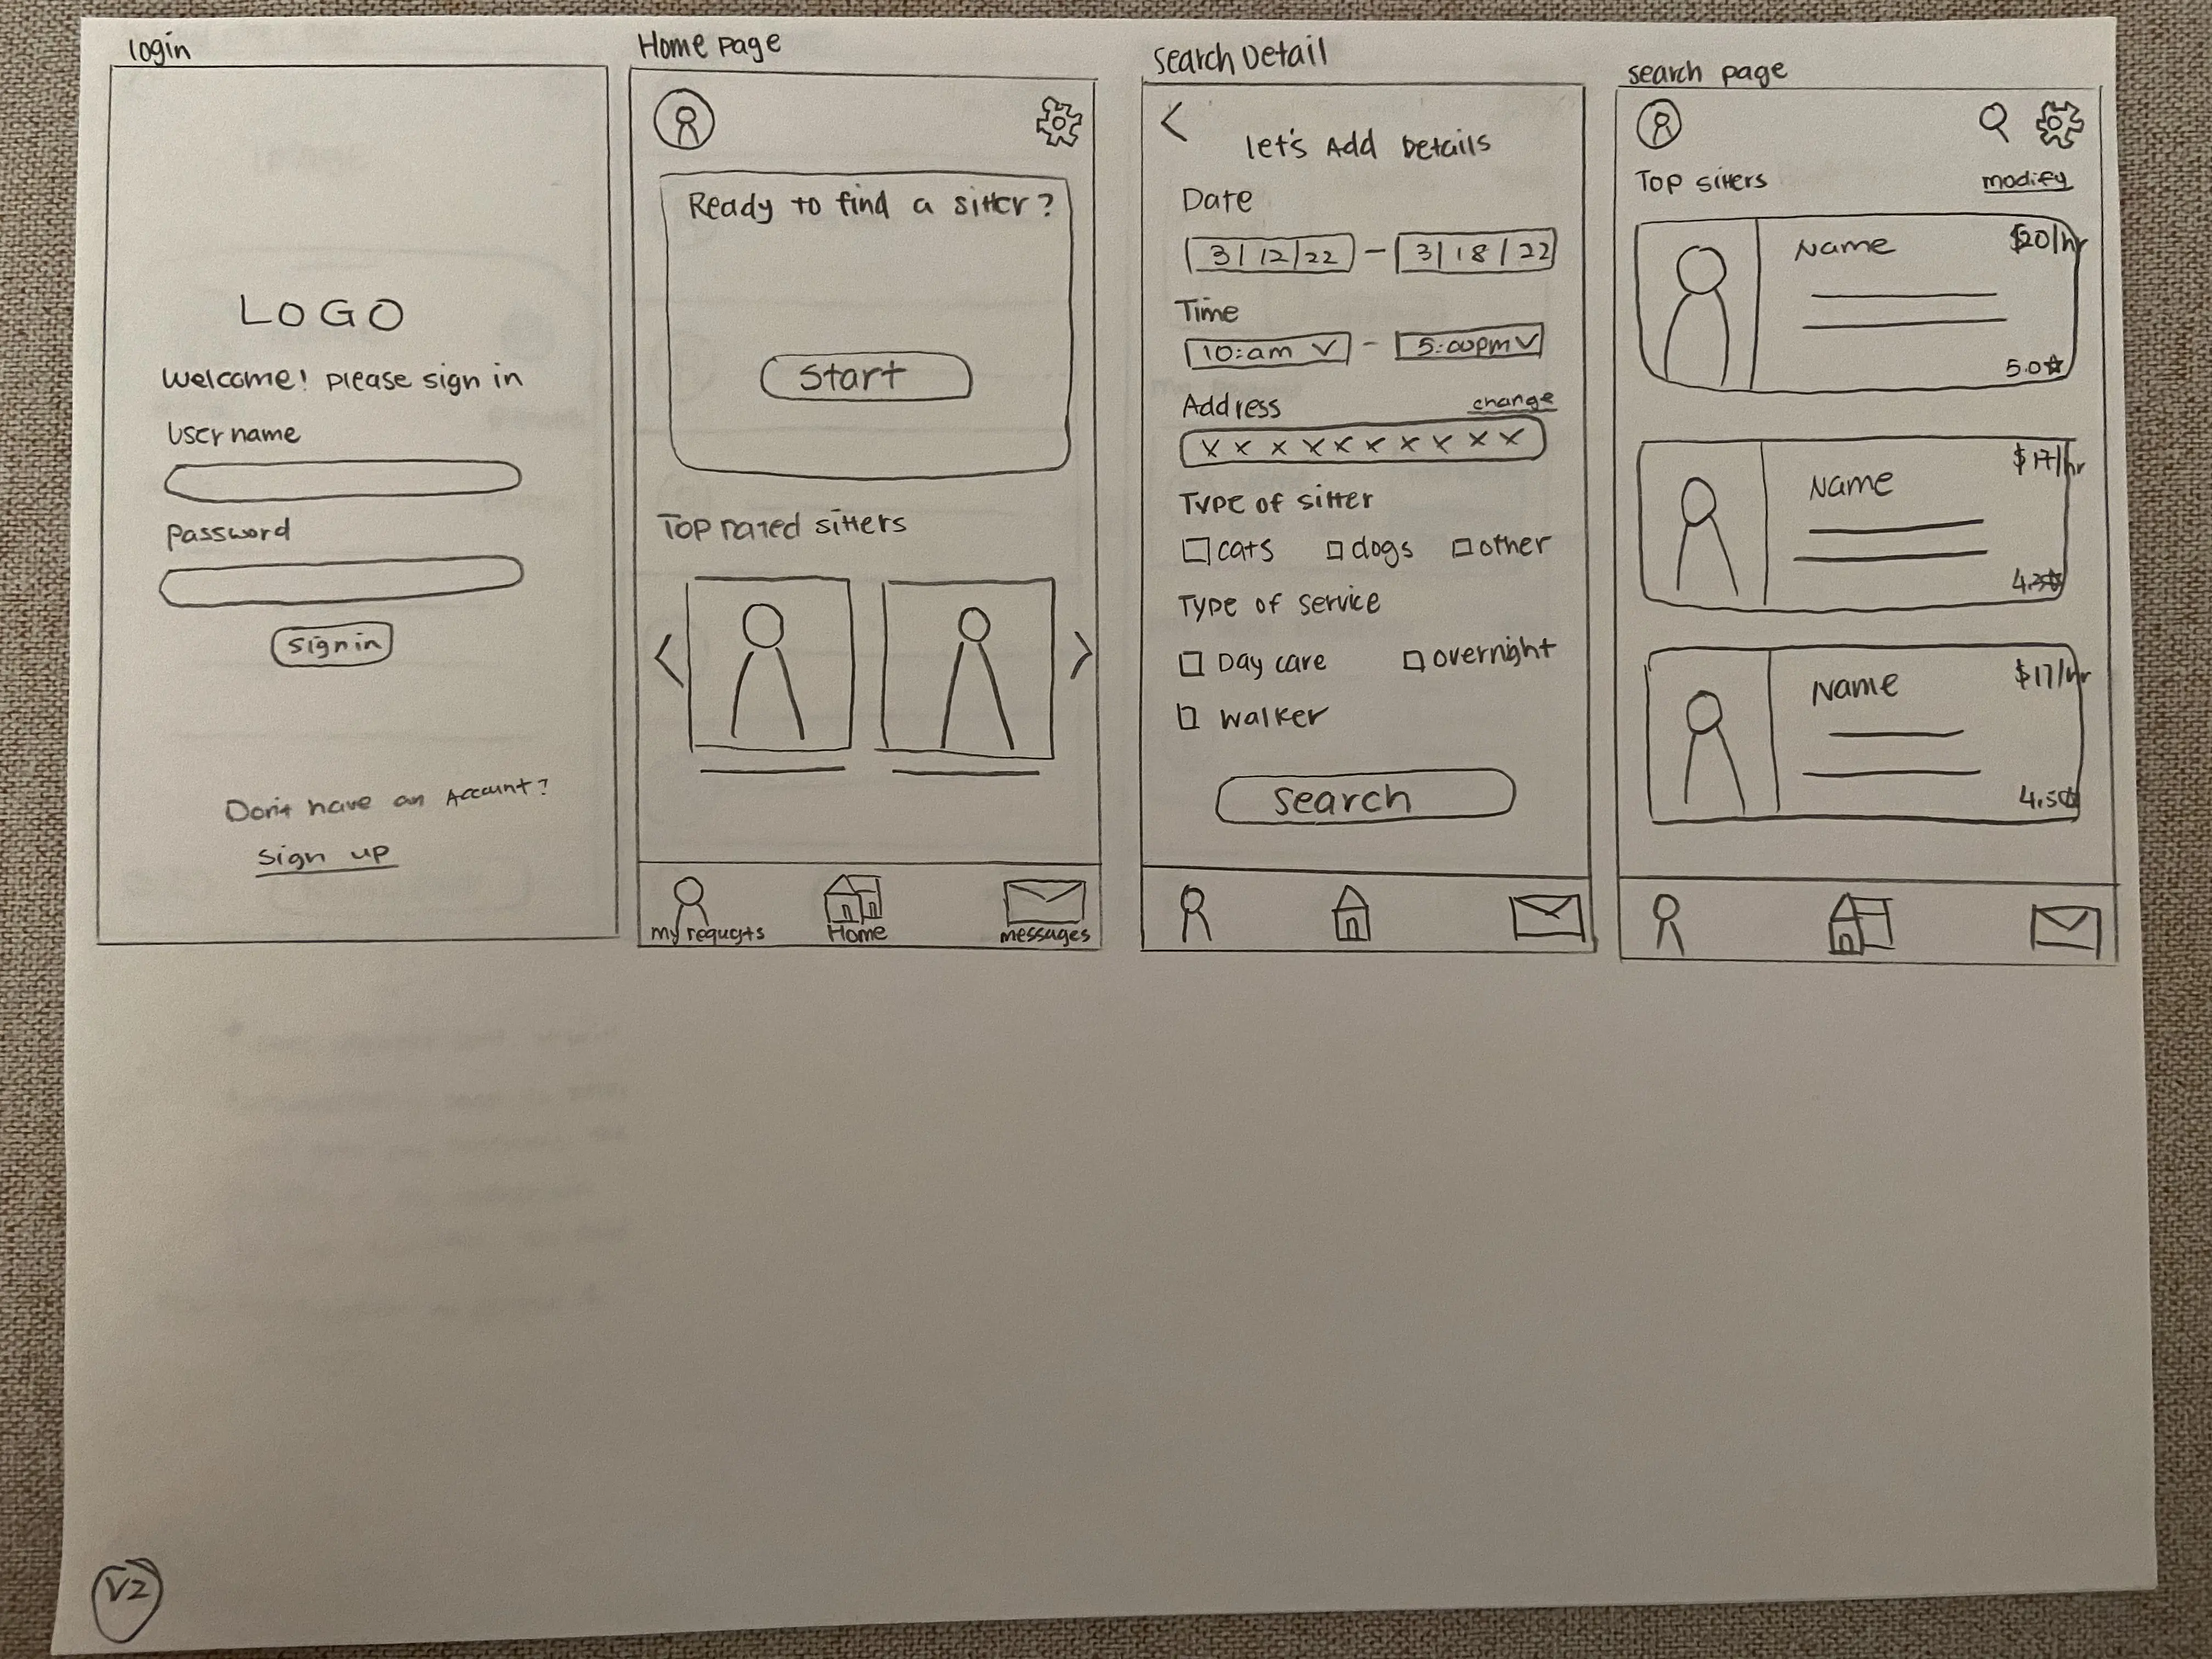 login
LOGO
Welcome! please sign in
User name
password
sign in
Don't have an Account?
sign up
Home page
Ready to find a sitter?
Start
Top rated sitters
my requests
Home
messages
Search Detail
let's Add Details
Date
3/12/22 - 3/18/22
Time
10:am - 5:00pm
Address change
x x x x x x x x x x
Type of sitter
cats dogs other
Type of service
Day care overnight
walker
Search
search page
Top sitters modify
Name $20/hr
5.0
Name $17/hr
Name $17/hr
4.5
V2